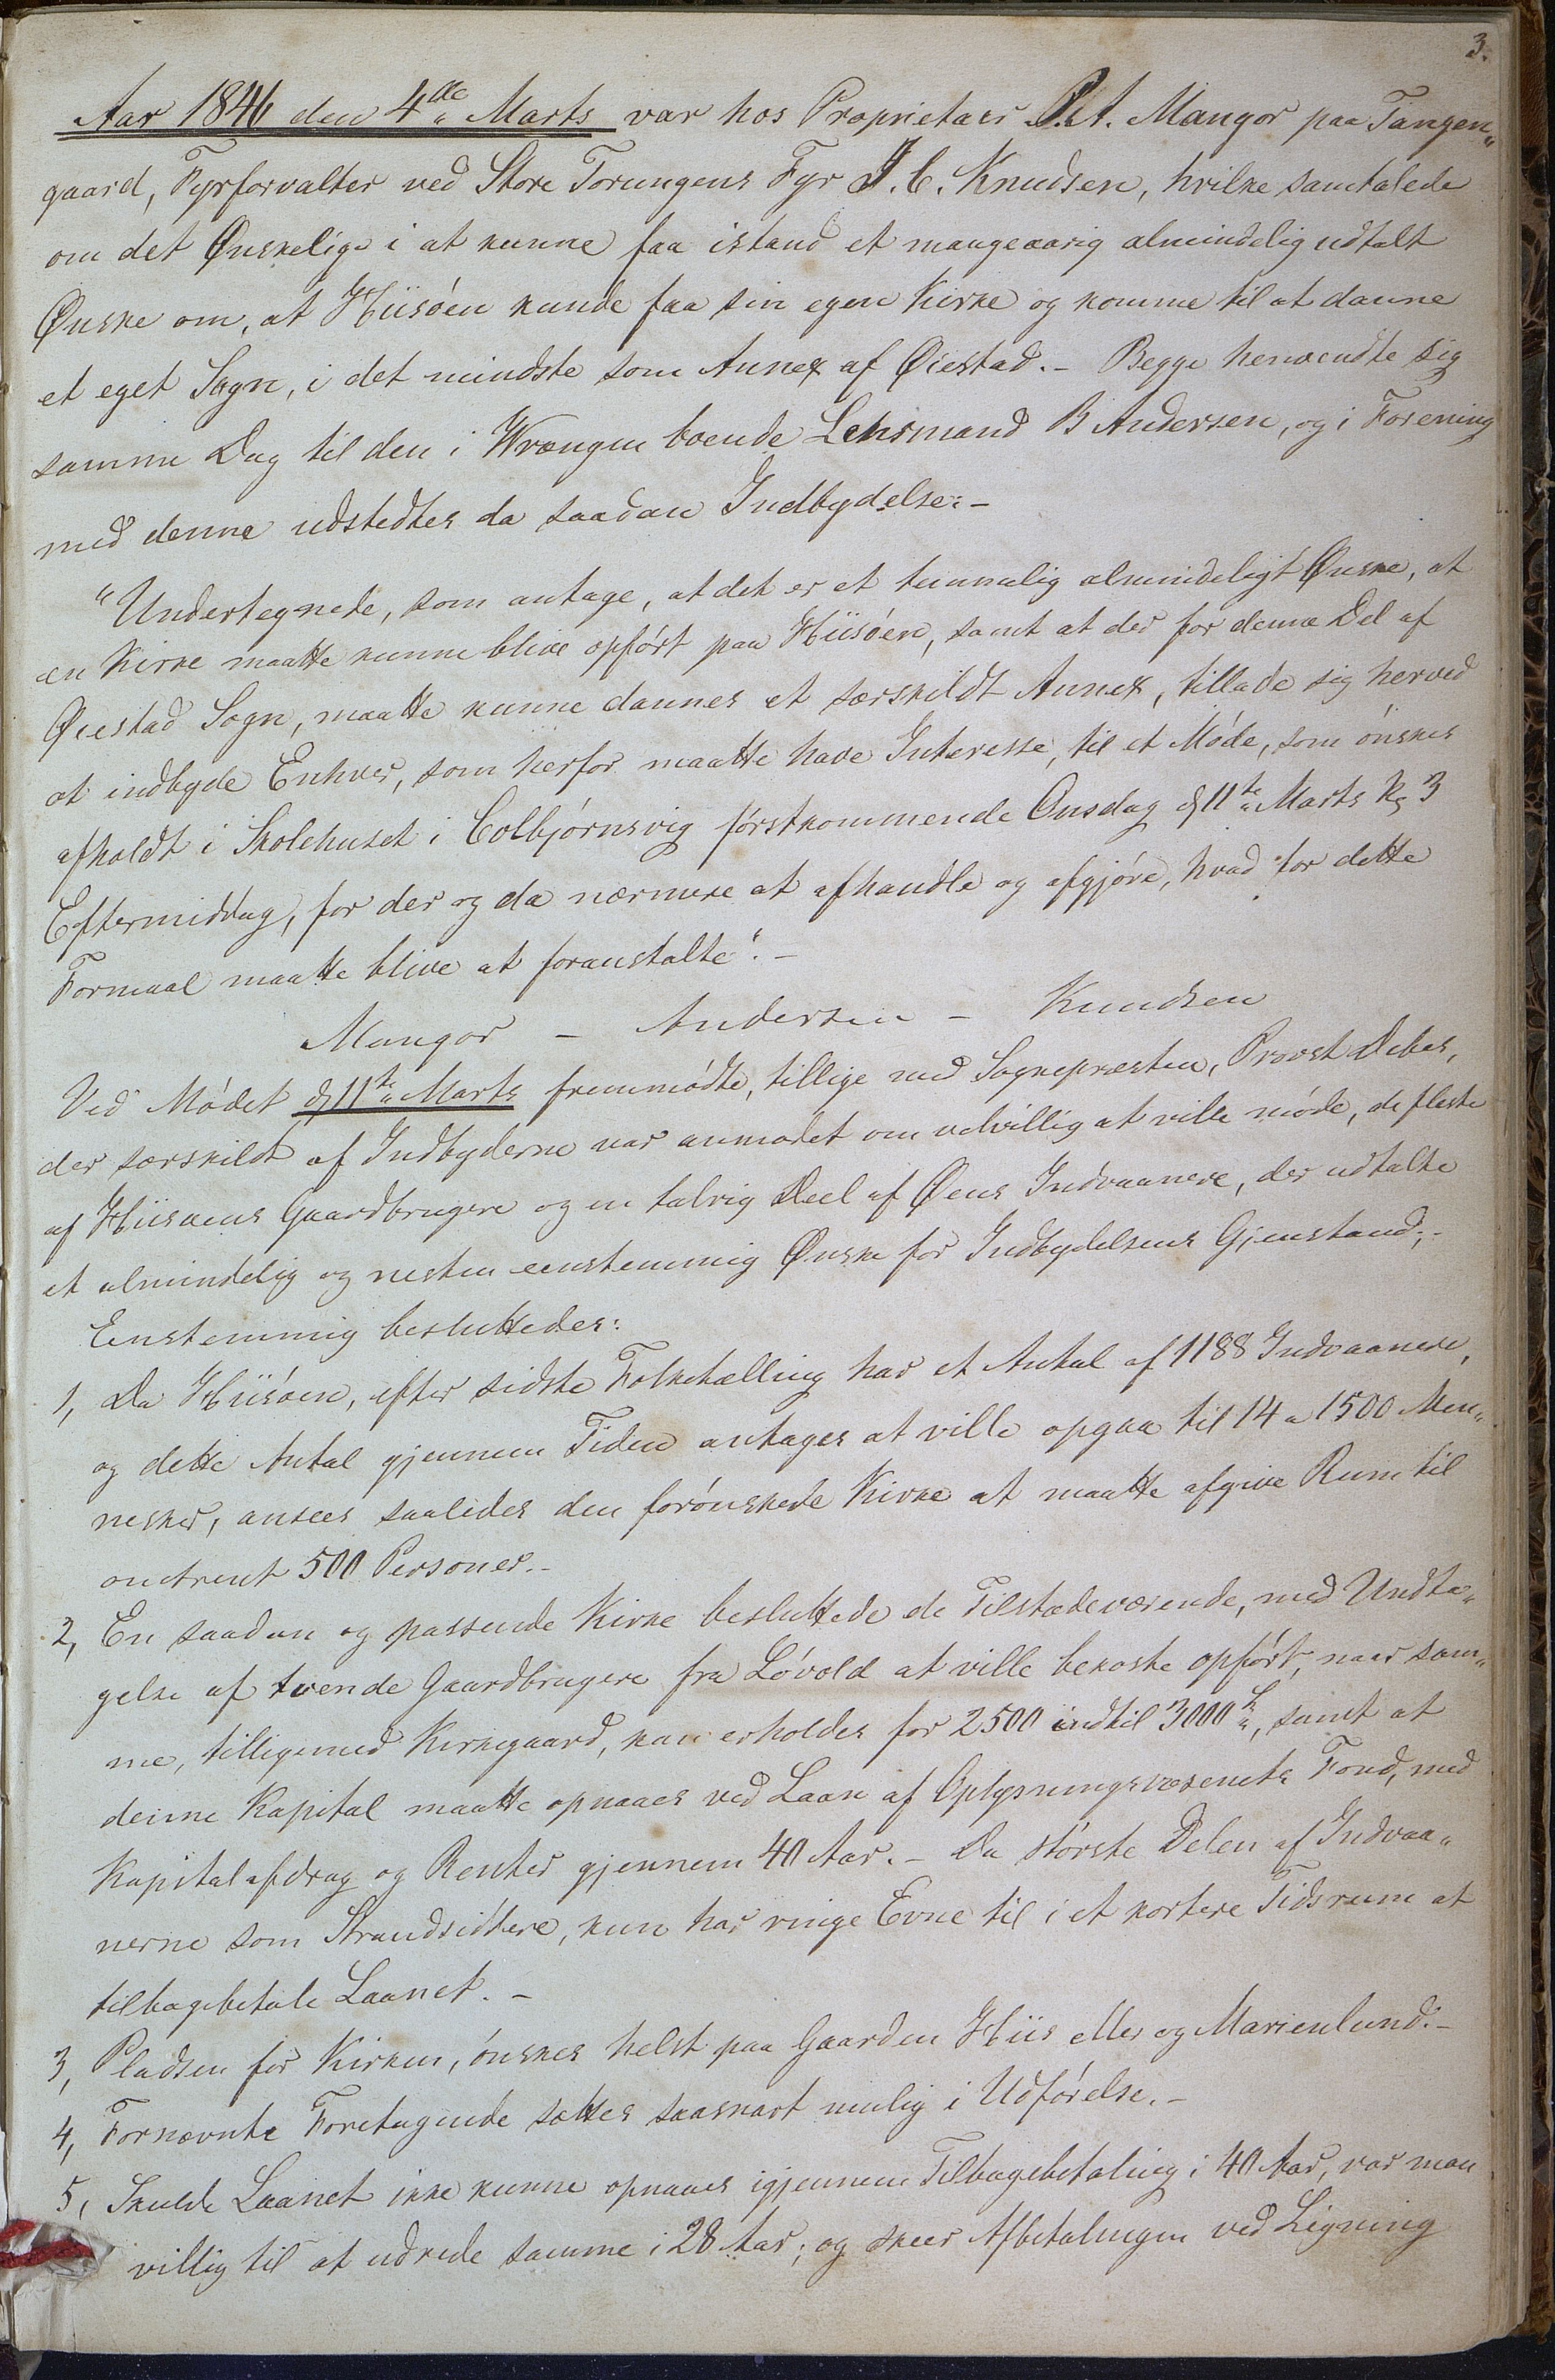 3.
Aar 1846 den 4de Marts var hos Proprietær P. A. Mangor paa Tangen„
gaard, Fyrforvalter ved Store Torungens Fyr J. C. Knudsen, hvilke samtalede
om det Ønskelige i at kunne faa istand et mangeaarig almindelig udtalt
Ønske om, at Hiisöen kunde faa sin egen Kirke og komme til at danne
et eget Sogn, i det mindste som Annex af Øiestad. - Begge henvendte sig
samme Dag til den i Wrængen boende Lehsmand B Andersen, og i Forening
med denne udstedtes da saadan Indbydelse: -
"Undertegnede, som antage, at det er et temmelig almindeligt Ønske, at
en Kirke maatte kunne blive opfört paa Hiisöen, samt at der for denne Del af
Øiestad Sogn, maatte kunne dannes et særskildt Annex, tillade sig herved
at indbyde Enhver, som herfor maatte have Interesse, til et Möde, som önskes
afholdt i Skolehuset i Colbjörnsvig förstkommende Onsdag d 11te Marts Kl 3
Eftermiddag, for der og da nærmere at afhandle og afgjöre, hvad for dette
Formaal maatte blive at foranstalte". -
Mangor - Andersen - Knudsen
Ved Mödet d 11te Marts fremmödte, tillige med Sognepræsten, Provst Debes,
der særskildt af Indbyderne var anmodet om velvillig at ville möde, de fleste
af Hiisøens Gaardbrugere og en talrig Deel af Øens Indvaanere, der udtalte
et almindelig og nesten eenstemmig Ønske for Indbydelsens Gjenstand; -
Eenstemmig besluttedes:
1, Da Hiisöen, efter sidste Folketælling har et Antal af 1188 Indvaanere,
og dette Antal gjennem Tiden antages at ville opgaa til 14 a 1500 Men„
nesker, ansees saaledes den forönskede Kirke at maatte afgive Rum til
omtrent 500 Personer. -
2, En saadan og passende Kirke besluttede de Tilstædeværende, med Undta„
gelse af tvende Gaardbrugere fra Lövold at ville bekoste opfört, naar sam„
me, tilligemed Kirkegaard, kan erholdes for 2500 indtil 3000 , samt at
denne Kapital maatte opnaaes ved Laan af Oplysningsvæsenets Fond, med
Kapitalafdrag og Renter gjennem 40 Aar. - Da störste Delen af Indvaa„
nerne som Strandsiddere, kun har ringe Evne til i et kortere Tidsrum at
tilbagebetale Laanet. -
3, Pladsen for Kirken, önskes helst paa Gaarden Hiis eller og Marienlund. -
4, Fornævnte Foretagende sættes saasnart mulig i Udförelse. -
5, Skulde Laanet ikke kunne opnaaes igjennem Tilbagebetaling i 40 Aar, var man
villig til at udrede samme i 28 Aar; og skeer Afbetalingen ved Ligning